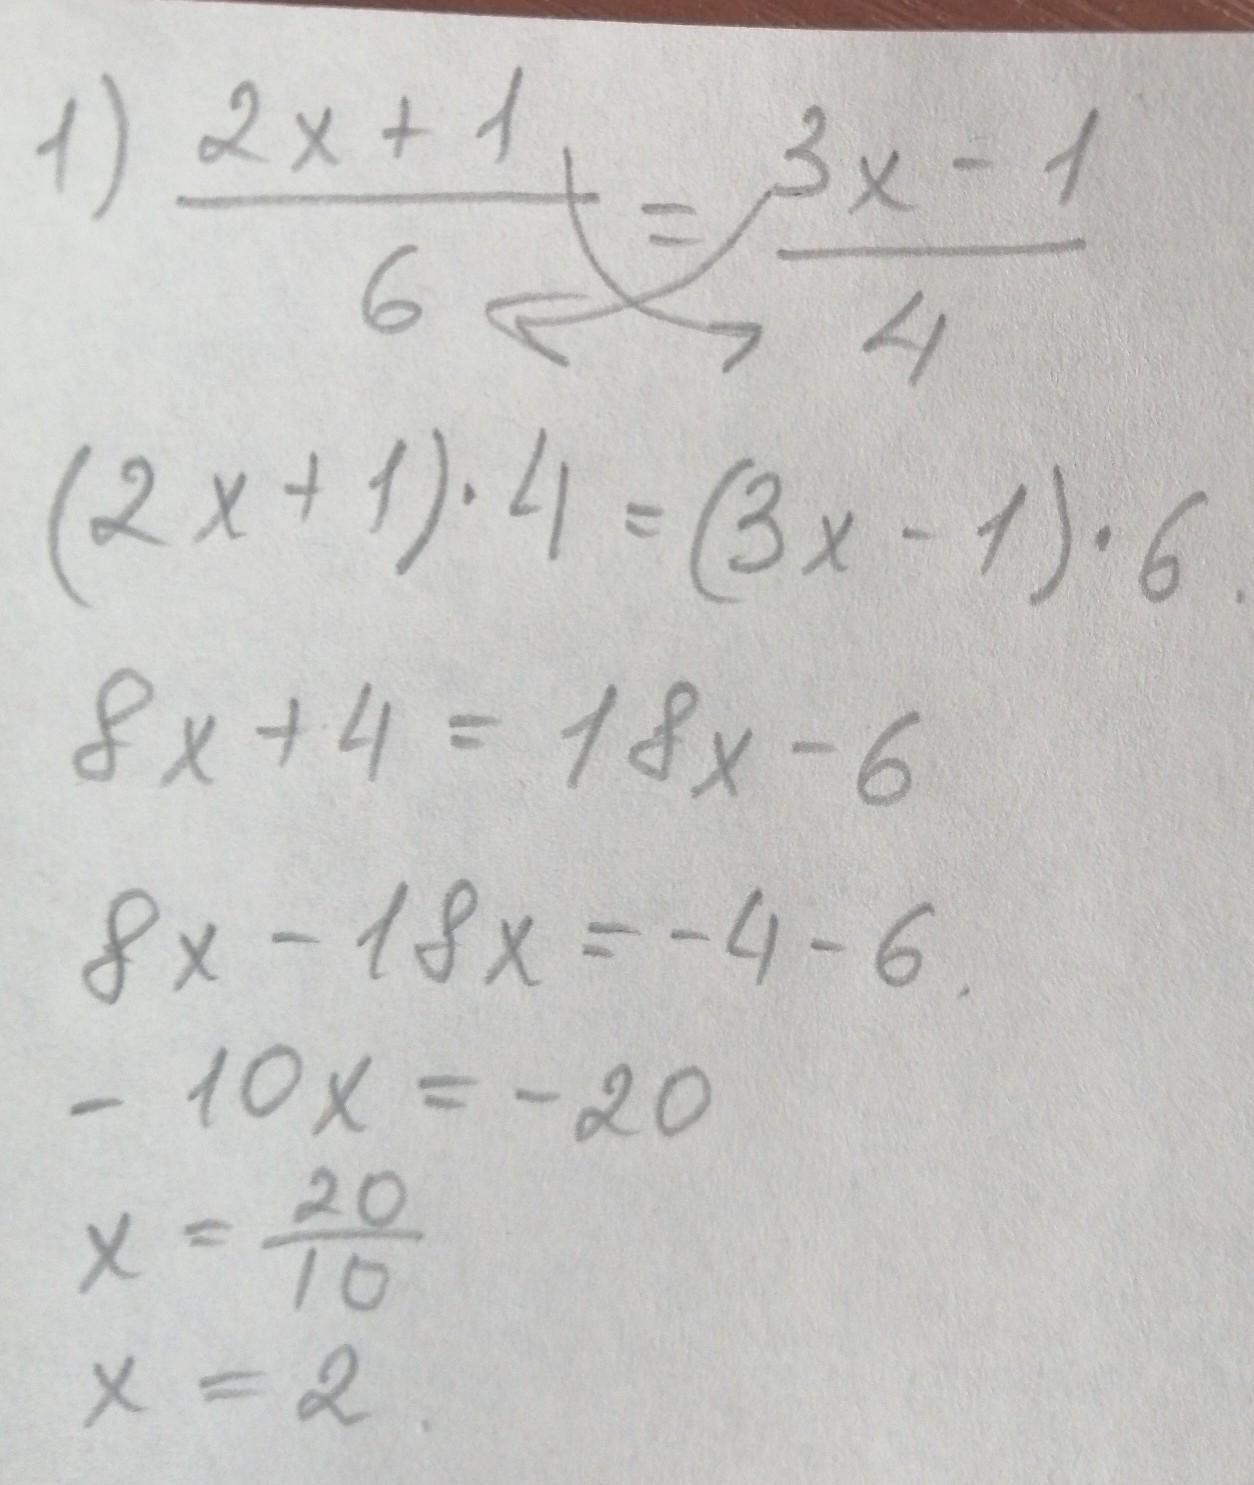 1) (2x + 1)/6 = (3x - 1)/4
(2x + 1) · 4 = (3x - 1) · 6.
8x + 4 = 18x - 6
8x - 18x = -4 - 6.
- 10x = -20
x = 20/10
x = 2.